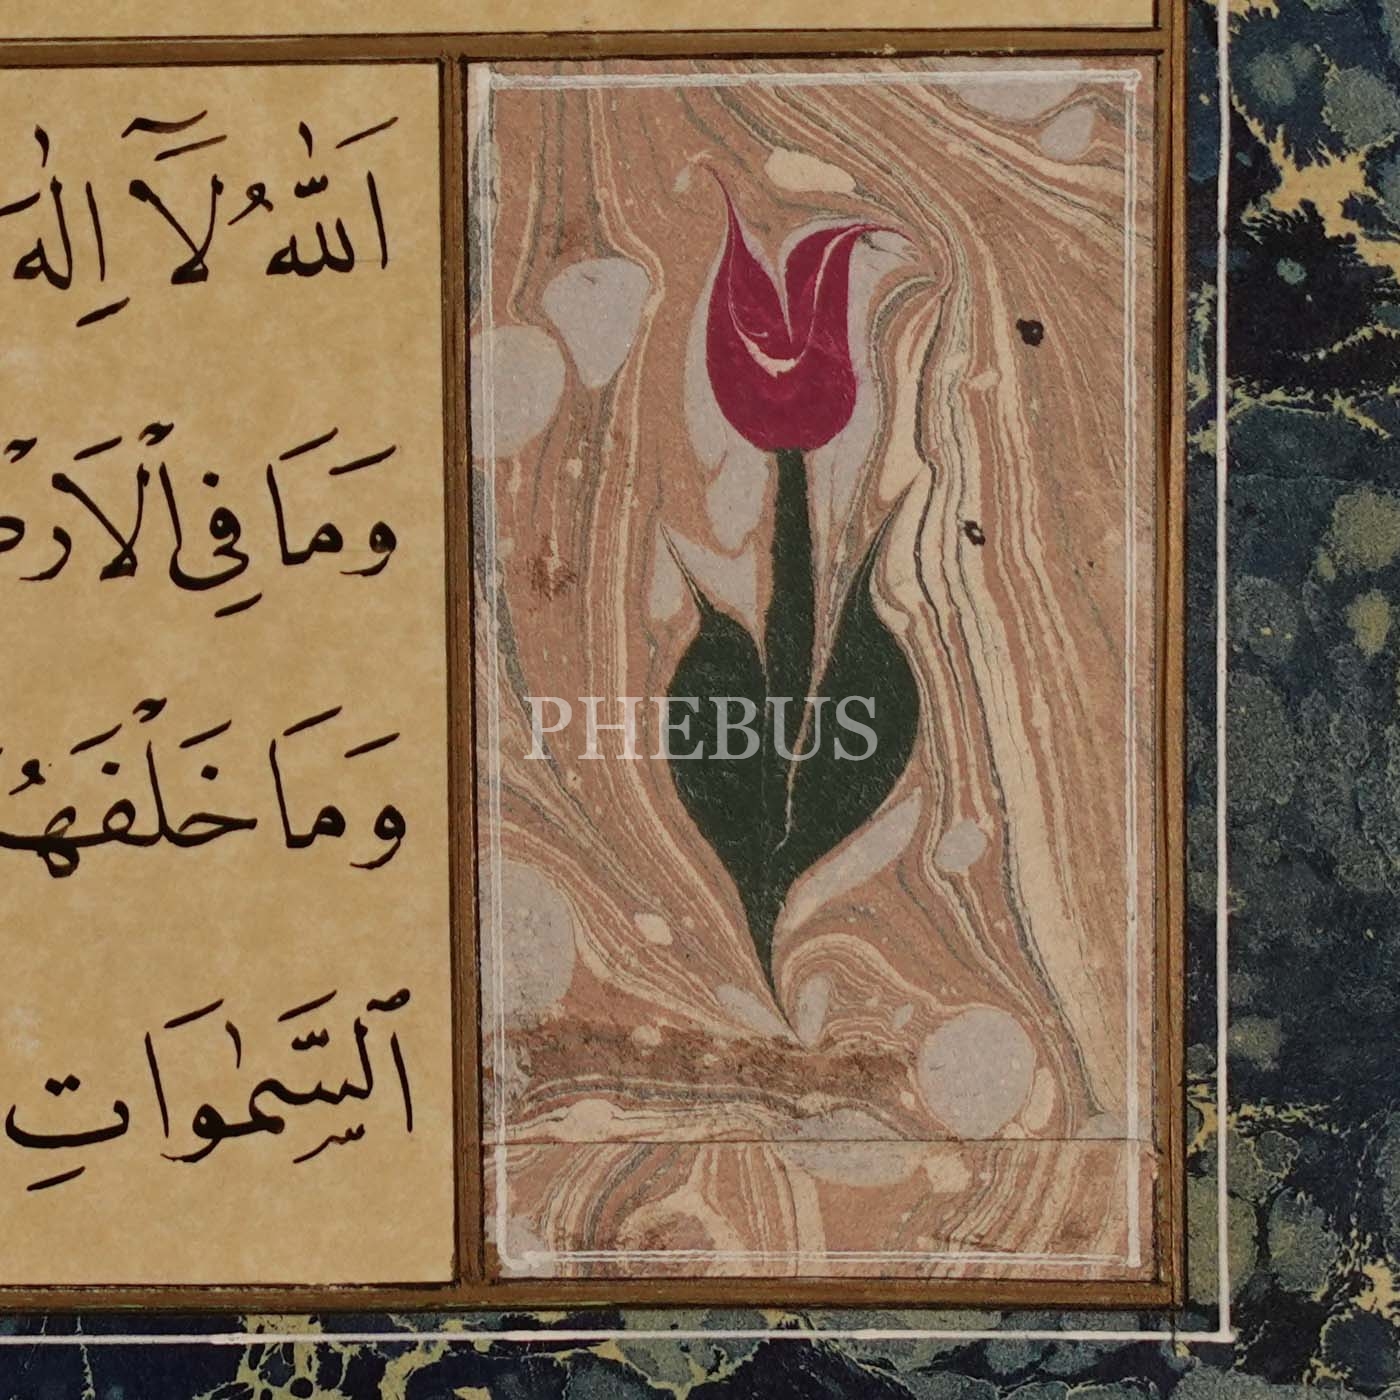 اَللّٰهُ لَآ اِلٰهَ
وَمَا فِي ٱلْاَرْضِ
وَمَا خَلْفَهُ
ٱلسَّمٰوَاتِ
PHEBUS